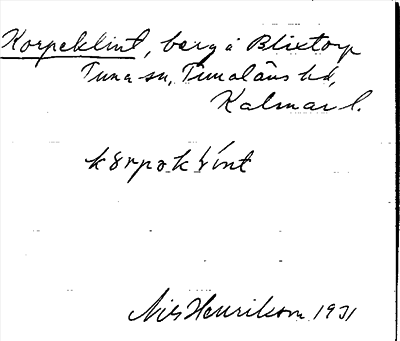 Korpeklint, berg å Blixtorp
Tuna sn, Tunaläns hd,
Kalmar l.
kɔrpəklint
Nils Henrikson 1931